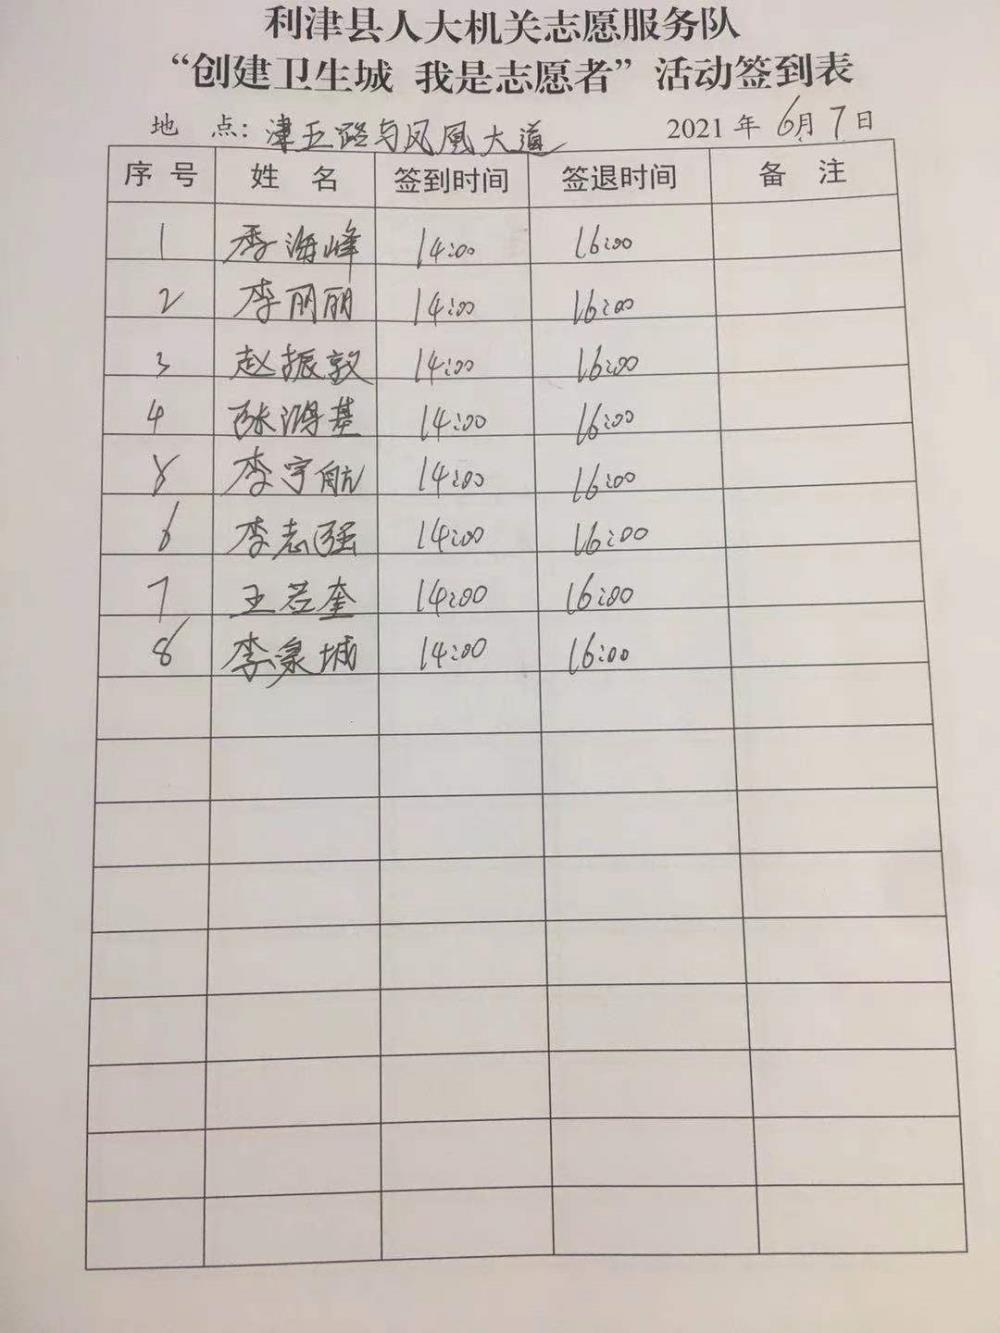 利津县人大机关志愿服务队
“创建卫生城 我是志愿者”活动签到表
地 点：津五路与凤凰大道 2021年6月7日
序号 姓名 签到时间 签退时间 备注
1 季海峰 14:00 16:00
2 李丽丽 14:00 16:00
3 赵振敦 14:00 16:00
4 张鸿基 14:00 16:00
5 李宇航 14:00 16:00
6 李志强 14:00 16:00
7 王若奎 14:00 16:00
8 李泉城 14:00 16:00